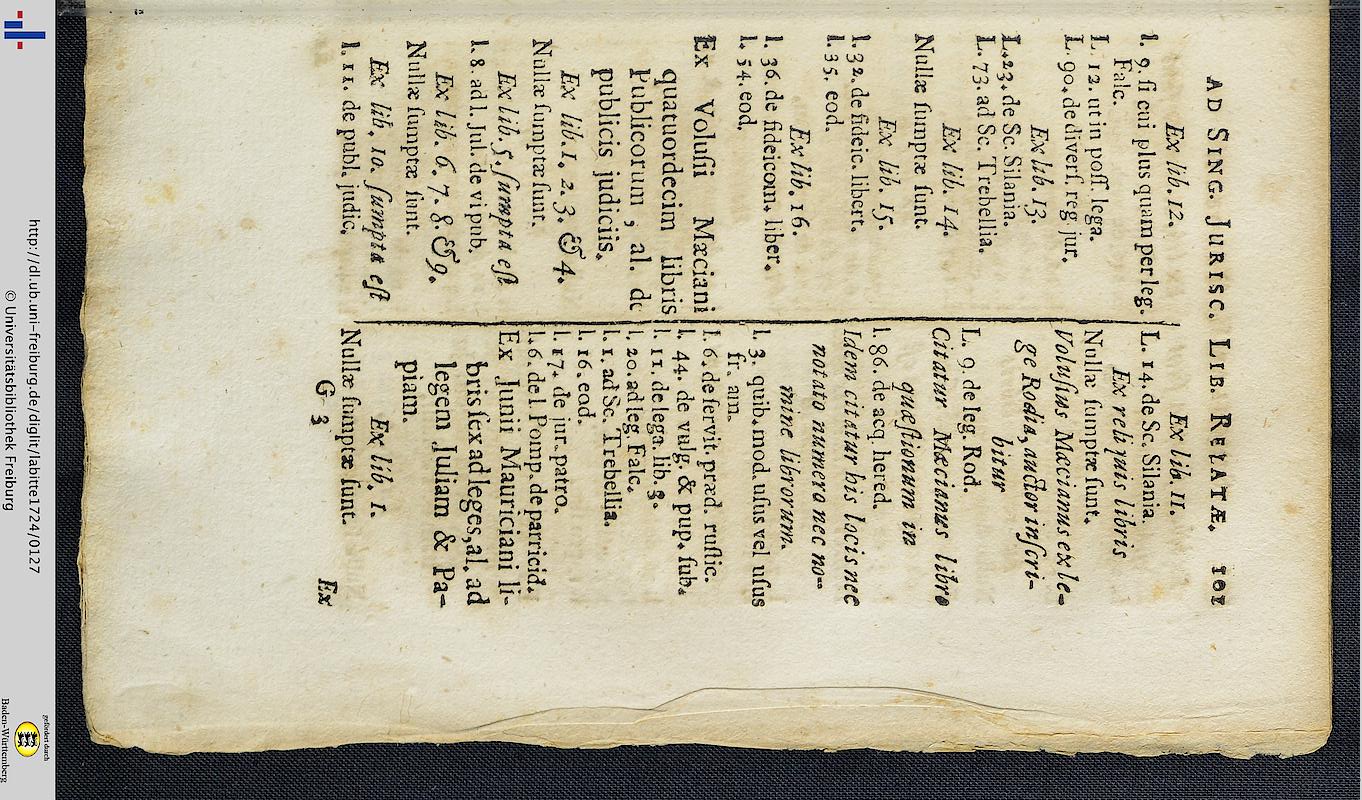 AD SING. JURISC. LIB. RELATÆ. 101
Ex lib. 12.
l. 9. ſi cui plus quam per leg.
Falc.
L. 12. ut in poſſ. lega.
L. 90. de diverſ. reg. jur.
Ex lib. 13.
L. 23. de Sc. Silania.
L. 73. ad Sc. Trebellia.
Ex lib. 14.
Nullæ ſumptæ ſunt.
Ex lib. 15.
l. 32. de fideic. libert.
l. 35. eod.
Ex lib. 16.
l. 36. de fideicom. liber.
l. 54. eod.
Ex Voluſii Mæciani
quatuordecim libris
Publicorum, al. de
publicis judiciis.
Ex lib. 1. 2. 3. & 4.
Nullæ ſumptæ ſunt.
Ex lib. 5. ſumpta eſt
l. 8. ad l. Jul. de vi pub.
Ex lib. 6. 7. 8. & 9.
Nullæ ſumptæ ſunt.
Ex lib. 10. ſumpta eſt
l. 11. de publ. judic.
Ex lib. 11.
L. 14. de Sc. Silania.
Ex reliquis libris
Nullæ ſumptæ ſunt.
Voluſius Mæcianus ex le-
ge Rodia, auctor inſcri-
bitur
L. 9. de leg. Rod.
Citatur Mæcianus libro
quæſtionum in
l. 86. de acq. hered.
Idem citatur his locis nec
notato numero nec no-
mine librorum.
l. 3. quib. mod. uſus vel uſus
fr. am.
l. 6. de ſervit. præd. ruſtic.
l. 44. de vulg. & pup. ſub.
l. 11. de lega. lib. 3.
l. 20. ad leg. Falc.
l. 1. ad Sc. Trebellia.
l. 16. eod.
l. 17. de jur. patro.
l. 6. de l. Pomp. de parricid.
Ex Junii Mauriciani li-
bris ſex ad leges, al. ad
legem Juliam & Pa-
piam.
Ex lib. 1.
Nullæ ſumptæ ſunt.
G 3 Ex
http://dl.ub.uni-freiburg.de/diglit/labitte1724/0127
© Universitätsbibliothek Freiburg
gefördert durch
Baden-Württemberg